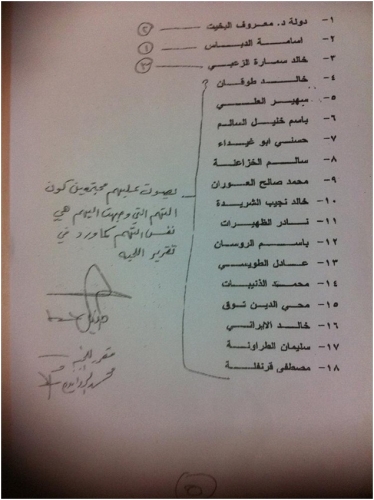 ١- دولة د. معروف البخيت ٢
٢- اسامة الدباس ٤
٣- خالد سمارة الزعبي ٣
٤- خالد طوقان
٥- سهير العلي
٦- باسم خليل السالم
٧- حسني ابو غيداء
٨- سالم الخزاعنة
٩- محمد صالح العوران
١٠- خالد نجيب الشريدة
١١- نادر الظهيرات
١٢- باسم الروسان
١٣- عادل الطويسي
١٤- محمد الذنيبات
١٥- محي الدين توق
١٦- خالد الايراني
١٧- سليمان الطراونة
١٨- مصطفى قرنفلة
يصوت عليهم مجتمعين كون
التهم التي وجهت اليهم هي
نفس التهم كما ورد في
تقرير اللجنه
مقرر اللجنة